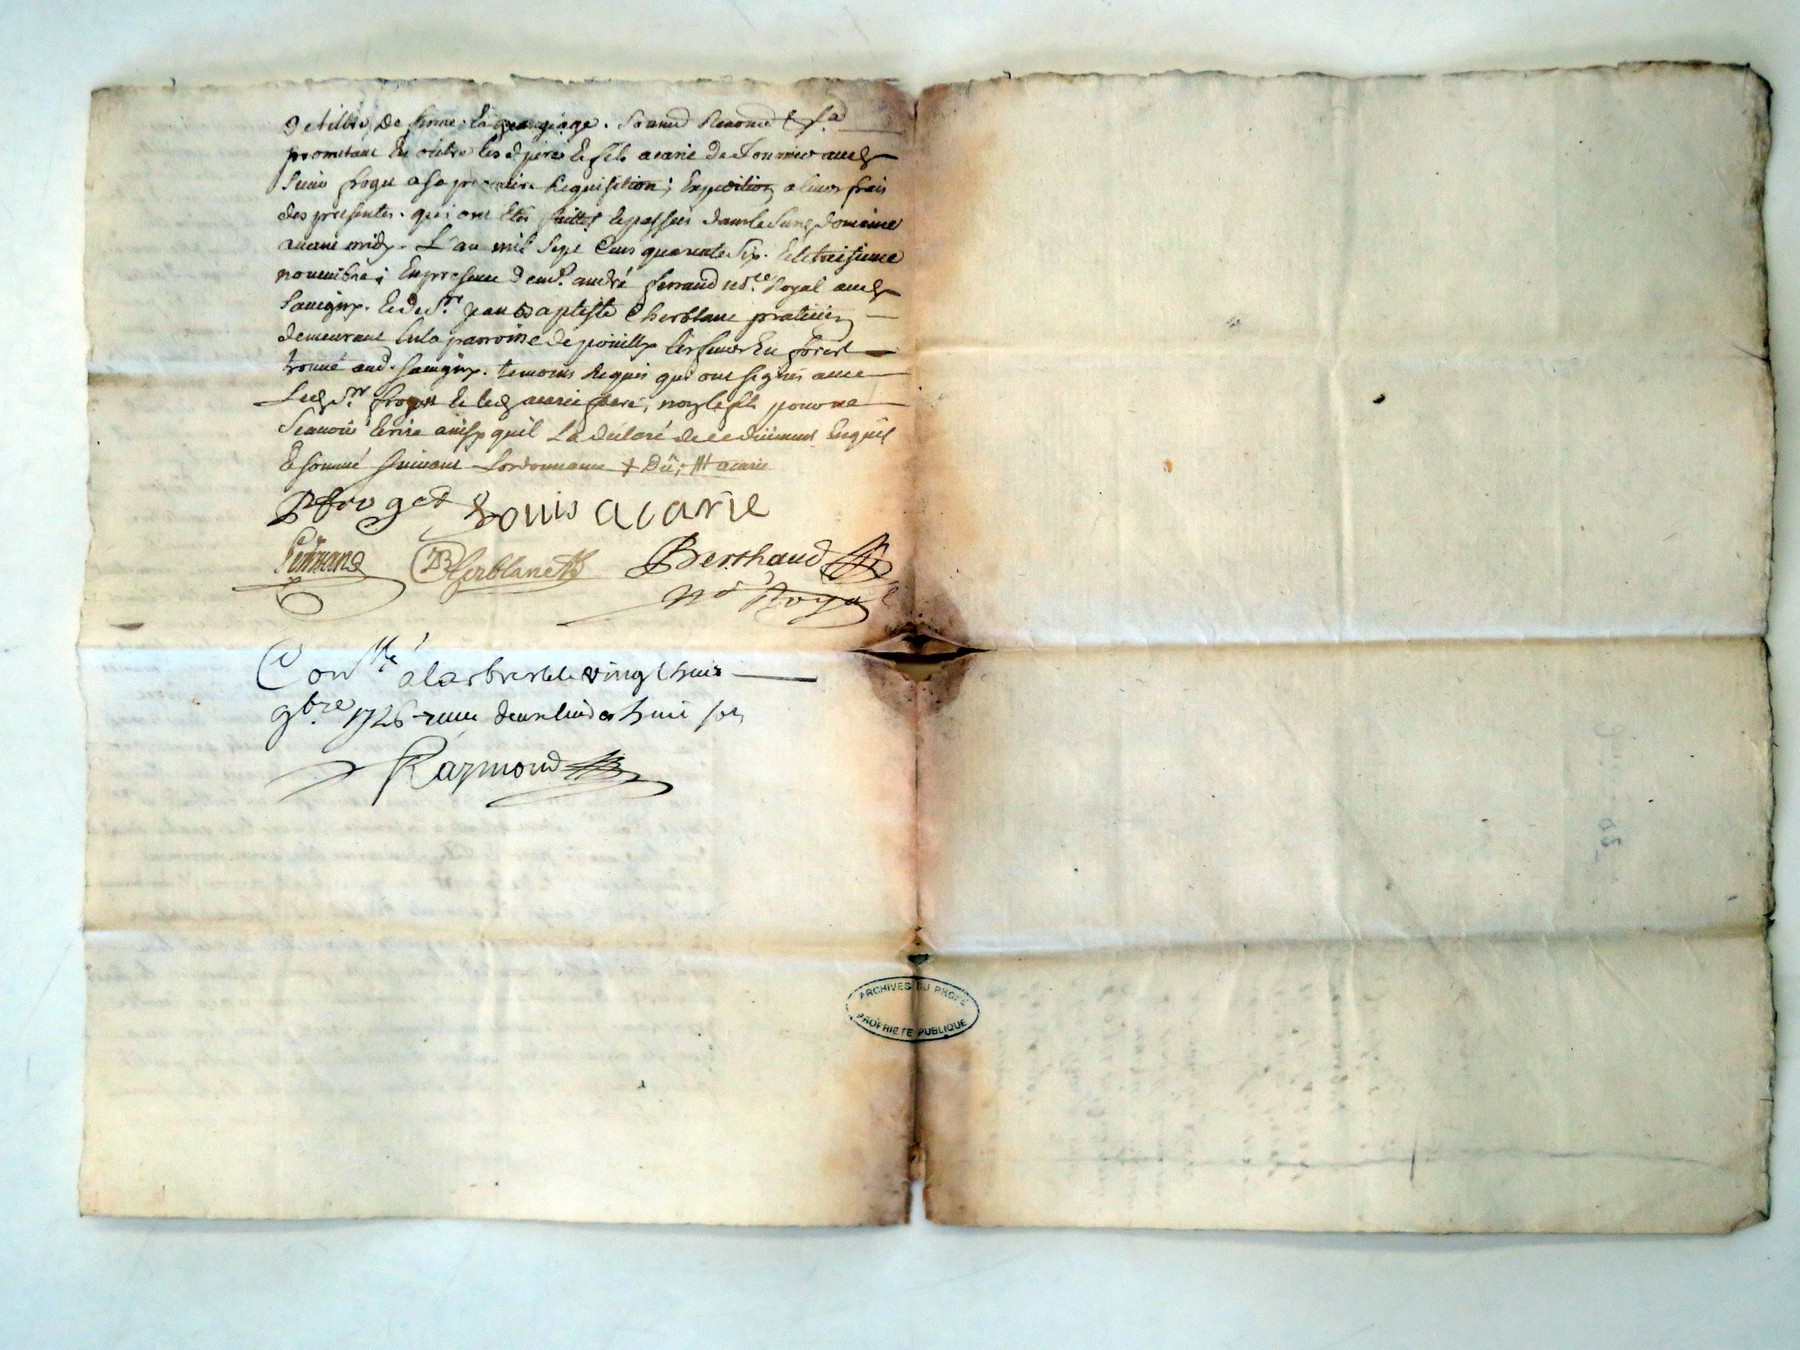 prometant En oultre lesd père Et fils acarie de fournir aud
Sieur froget a sa premiere Requisition; Expedition a leurs frais
des presentes. qui ont Etés faittes Et passées dans led domaine
avant midy. L'an mil Sept Cens quarante Six. Et le treisieme
novembre; En presence de me. andré ferrand Royal aud
Savigny. Et de sr. Jean Baptiste Cherblanc praticien
demeurant la parroisse de poüilly En forest
trouvé aud. Savigny. temoins Requis qui ont signés avec
Led sr. froget Et led acarie pere, non le fils pour ne
Scavoir Ecrire ainsy quil La déclaré de ce Enquis
Et sommé suivant Lordonnance acarie
froget Louis acarie
ferrand Cherblanc Berthaud
nre Royal
Conllé à larbresle le vingt huit
9bre 1746 reçu deux livres huit sols
Raymond
ARCHIVES DU RHÔNE
PROPRIETE PUBLIQUE